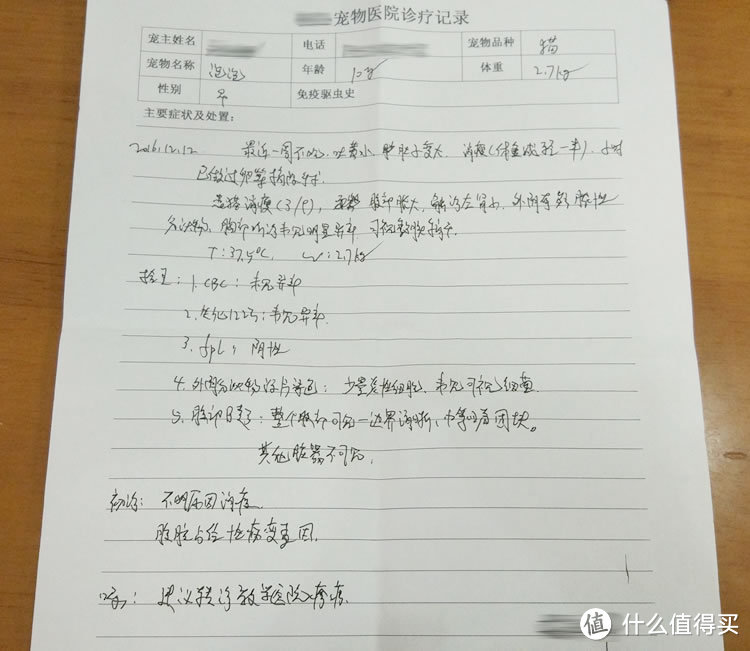 宠物医院诊疗记录
宠主姓名 电话 宠物品种 猫
宠物名称 泡泡 年龄 10岁 体重 2.7kg
性别 ♀ 免疫驱虫史
主要症状及处置:
2016.12.12 最近一周不吃,吐黄水,肚子变大,消瘦(体重减轻一半)
已做过卵巢摘除术
消瘦(3/9), 腹部胀大, 触诊左肾小, 外阴有脓性
分泌物, 胸部听诊未见明显异常
T:37.5℃, W:2.7kg
检查:1.CBC:未见异常
2.生化12项:未见异常
3.fpL:阴性
4.外阴分泌物涂片染色:少量炎性细胞,未见可视细菌
5.腹部B超:整个腹部可见一边界清晰,中等回声团块。
其他脏器不可见,
初诊:不明原因消瘦
腹腔占位性病变查因
建议转诊教学医院
值 什么值得买